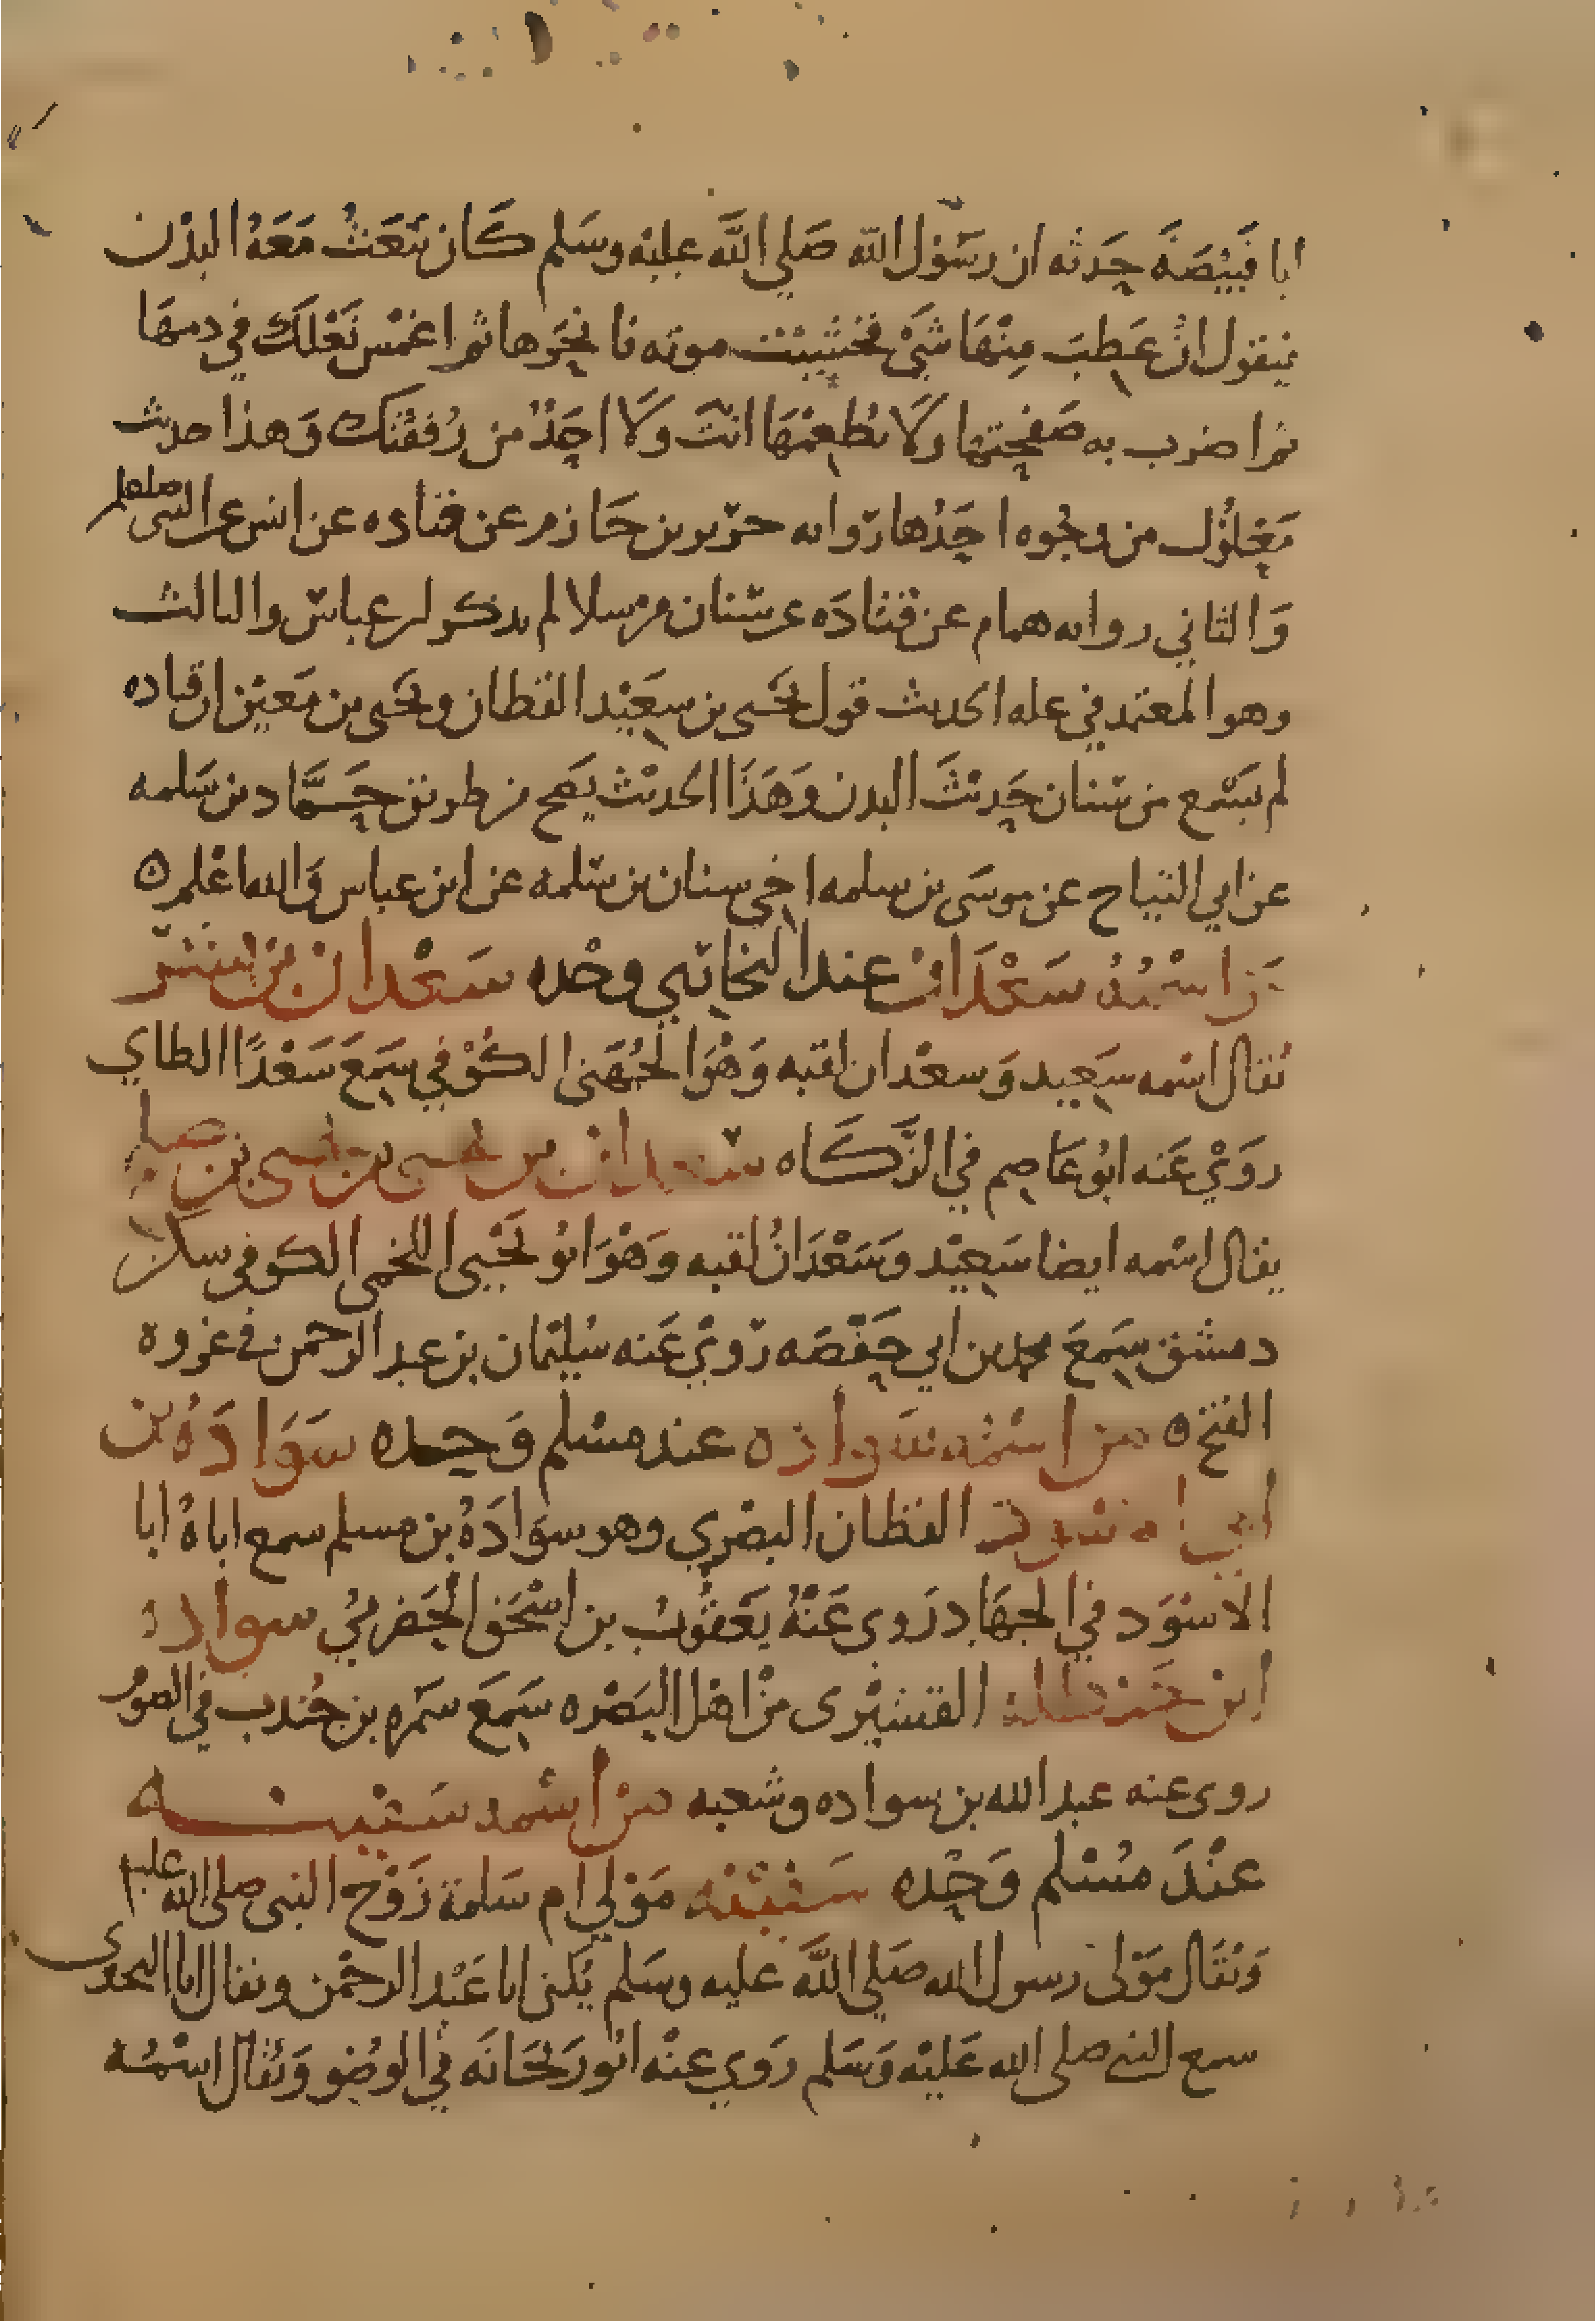 ابا قَبيْصَةَ حَدثه ان رسَوُل الله صَلي اللَّه عليْه وسَلم كَان يَبعَثُ مَعَهُ البدْن
فيقول انْ عَطِبَ مِنْهَا شَيْ فخشيْت موته فانحَرها ثم اغمْس نَعْلَكَ في دمهَا
ثم اضرب به صَفحتها ولَا تطعمْهَا انتَ وَلَا احَدٌ من رُفقتك وَهذا حديث
مَعْلوُل من وجُوه احَدُها روايه جرير بن حَازم عن قتاده عن انس عن النبى صلعم
وَالثاني روايه همام عن قتادَه عن سنان مرسلا لم يذكر ابن عباس والثالث
وهو المعتمد في عله الحديث قول يحَيى بن سعَيْد القطان ويحَيى بن مَعيْن ان قتاده
لم يسَمع من سنان حَديْثَ البدن وَهَذَا الحديْث يَصح من طريق حَمَّاد بن سَلمه
عن ابي التياح عن موسَى بن سلمه اخي سنان بن سَلمه عن ابن عباس وَالله اعْلم ه
مَن اسْمُهُ سَعْدَانْ عند البخاري وحْده سَعْدان بن بشر
يُقال اسْمه سَعيد وَسعْدان لقبه وَهْوَ الجُهَني الكوُفي سَمعَ سَعْدًا الطاي
روَيْ عَنه ابُو عَاصِم في الزَّكَاه سَعدان بن يحيى بن صلح
يقال اسْمه ايضا سَعِيْد وَسَعْدَانُ لقبه وَهْوَ ابُو يَحْيى اللخمي الكوفي سكن
دمشق سَمعَ محمد بن ابي حَفْصَه رَويْ عَنه سُليْمَان بن عبد الرحمن في غزوة
الفتح ه من اسْمُه سَوادَه عند مسْلم وَحده سَوَادَهُ بن
ابي الاسْود القطان البصْري وهو سوَادَهُ بن مسلم سمع اباهُ ابا
الاسْوَد في الجهَاد رَوى عَنْهُ يَعقُوب بن اسْحَق الحَضرميُ سواده
ابن حَنظلة القشيْرى مْن اهْل البَصْره سَمعَ سَمُره بن جُندب في الصوم
روى عنه عبد الله بن سواده وشعبه من اسْمه سَفيْنـــه
عنْدَ مسُلم وَحْده سَفيْنه مَوْلي ام سَلمة زَوْج النبى صلى الله عليه
وَيُقَال مَوْلى رسول الله صَلي اللَّه عليه وسَلم يكنى ابا عَبْد الرحمْن ويقال ابا البحترى
سمع النبي صلى الله عَليْه وَسَلم رَوي عنْه ابُو رَيحَانَه في الوضُو وَيُقال اسْمُه